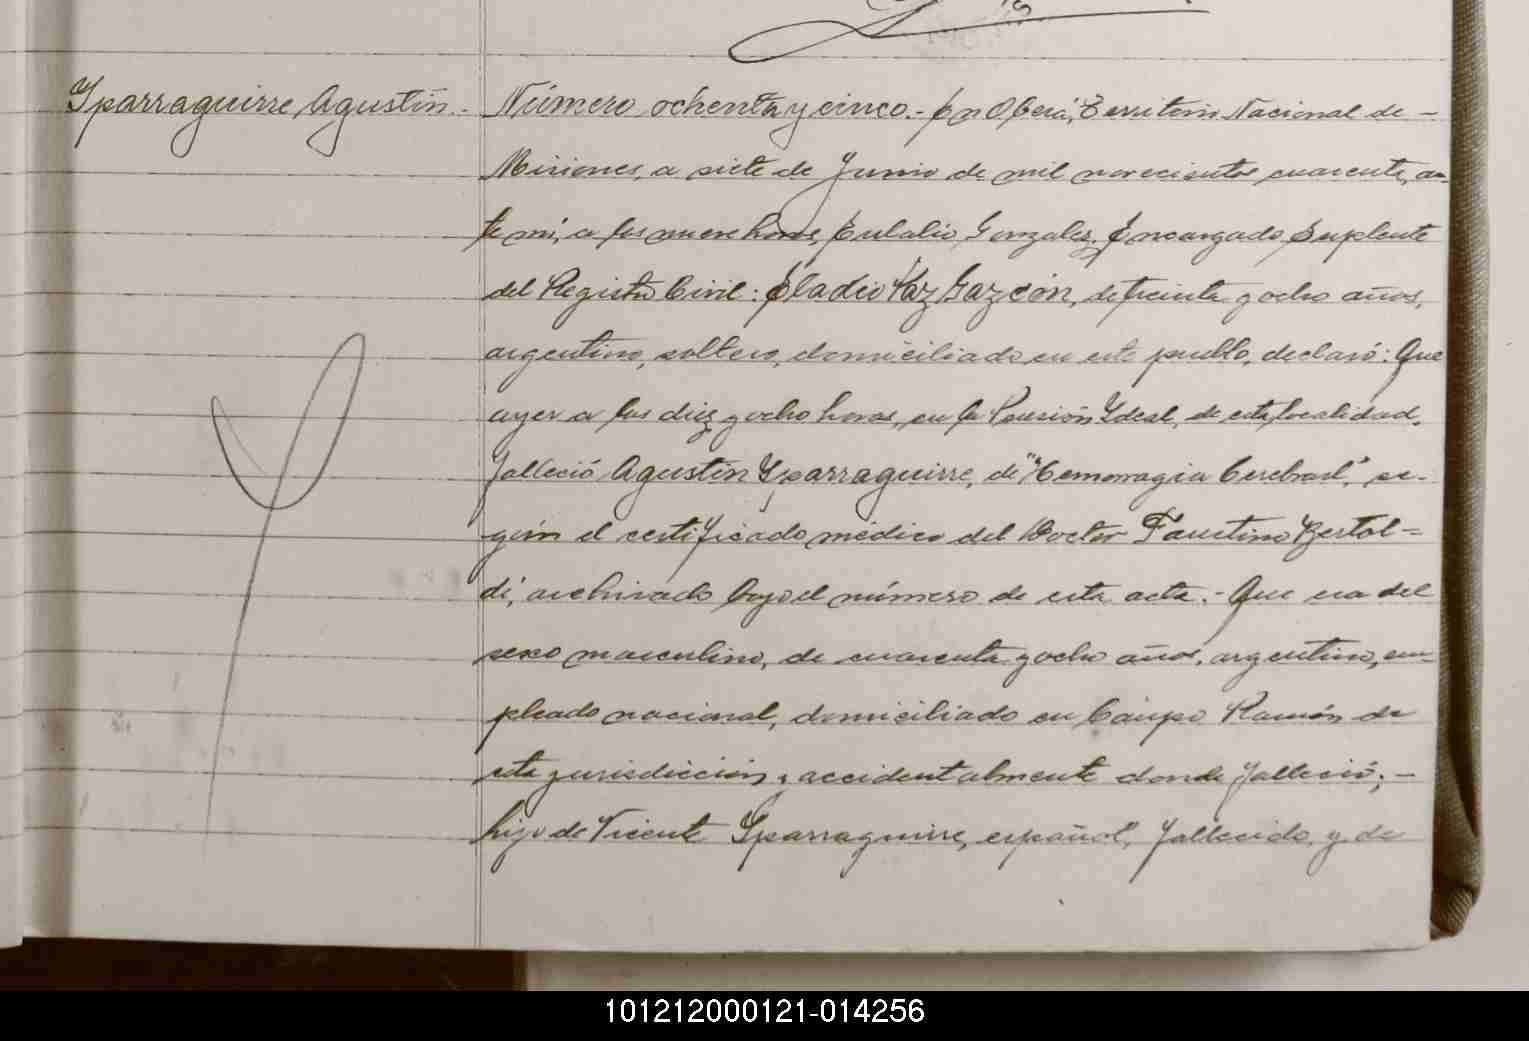 Yparraguirre Agustín.-
Número ochenta y cinco.- En Oberá, Territorio Nacional de -
Misiones, a siete de Junio de mil novecientos cuarenta, an-
te mí, a las nueve horas, Eulalio Gonzalez, Encargado Suplente
del Registro Civil: Eladio Vaz Gazcón, de treinta y ocho años,
argentino, soltero, domiciliado en este pueblo, declaró: Que
ayer a las diez y ocho horas, en la Pensión Ydeal, de esta localidad,
falleció Agustín Yparraguirre, de "Hemorragia Cerebral", se-
gún el certificado médico del Doctor Faustino Bertol-
di, archivado bajo el número de esta acta.- Que era del
sexo masculino, de cuarenta y ocho años, argentino, em-
pleado nacional, domiciliado en Campo Ramón de
esta jurisdicción, accidentalmente donde falleció; -
hijo de Vicente Yparraguirre, español, fallecido, y de
101212000121-014256